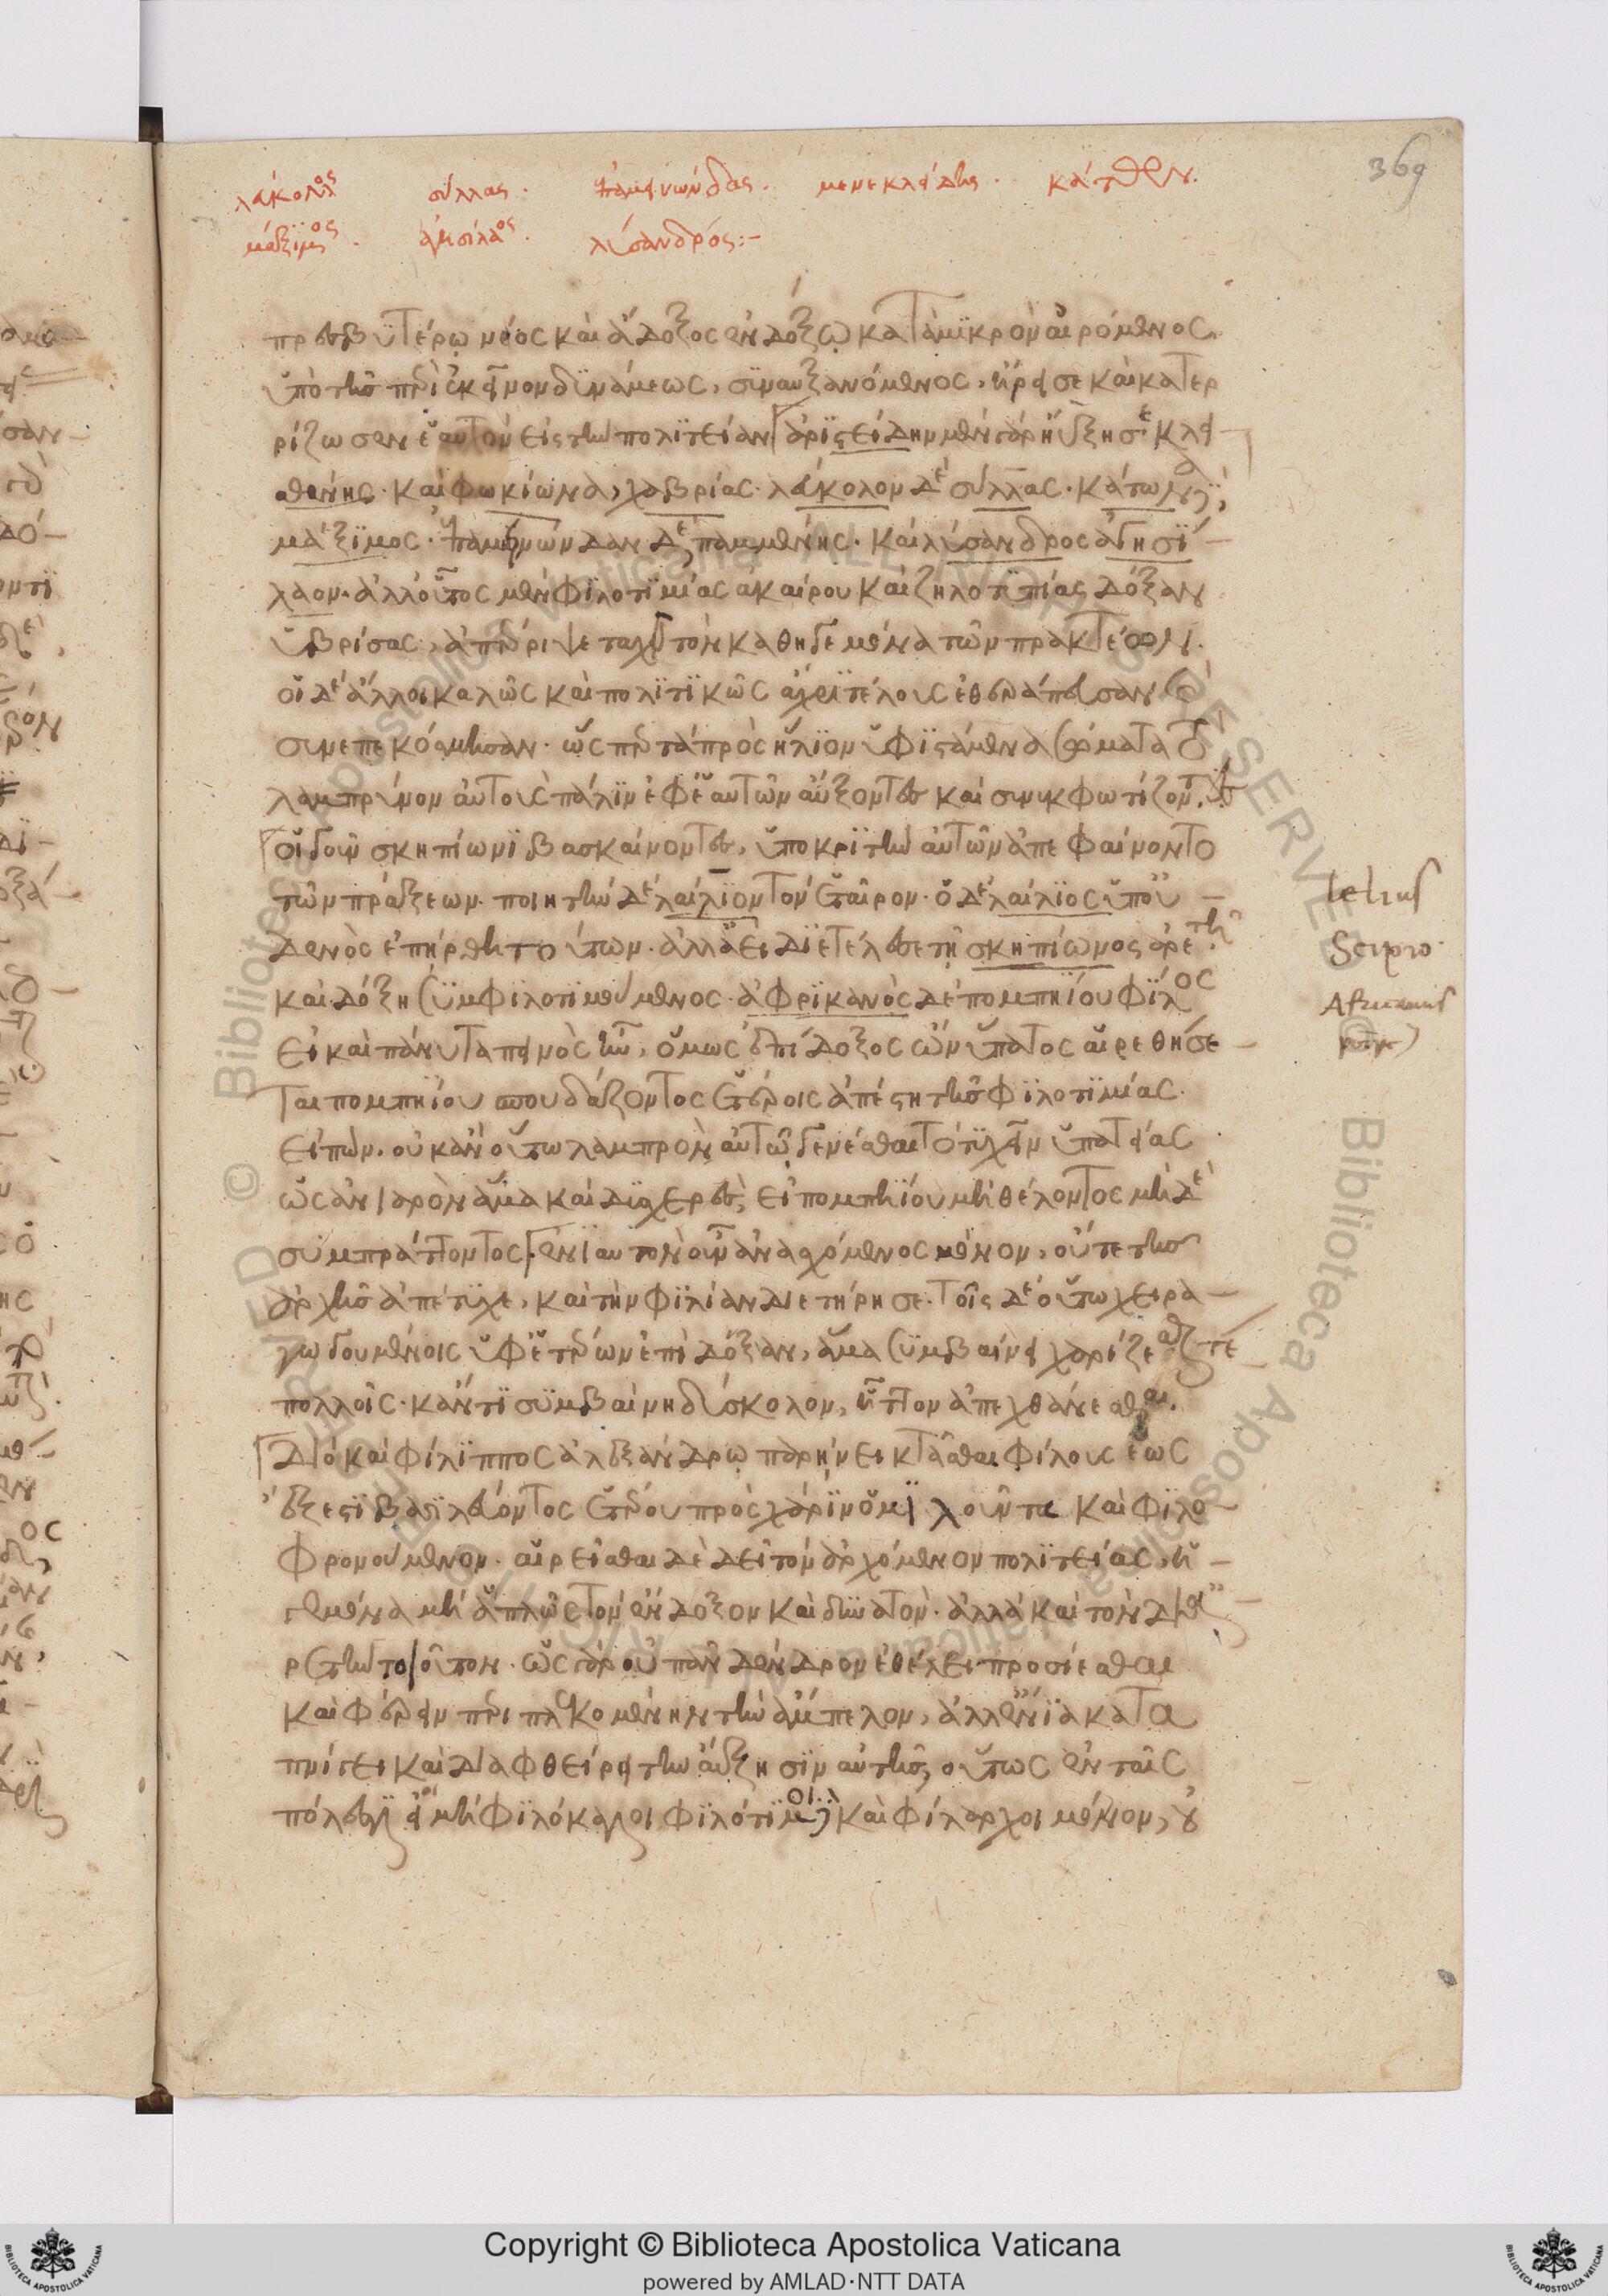 369
λεύκολλος σύλλας. ἐπαμεινώνδας. μενεκλείδης. κάτων.
μάξιμος. ἀγησίλαος. λύσανδρος:-
πρεσβυτέρω νέος καὶ ἄδοξος ἐνδόξω κατὰ μικρὸν αἰρόμενος
ὑπὸ τῆς περὶ ἐκεῖνον δυνάμεως, συναυξανόμενος, ἤρεισε καὶ κατερ
ρίζωσεν ἑαυτὸν εἰς τὴν πολιτείαν ἀριστείδην μὲν γὰρ ηὔξησε κλει
σθένης. καὶ φωκίωνα, χαβρίας. λεύκολον δὲ σύλλας. κάτωνα
μάξιμος. ἐπαμεινώνδαν δὲ παμμένης. καὶ λύσανδρος ἀγησί
λαον. ἀλλ' οὗτος μὲν φιλοτιμίας ἀκαίρου καὶ ζηλοτυπίας δόξαν
ὑβρίσας, ἀπέρριψε ταχὺ τὸν καθηγεμόνα τῶν πρακτέων.
οἱ δὲ ἄλλοι καλῶς καὶ πολιτικῶς ἄχρι τέλους ἐθεράπευσαν καὶ
συνεπεκόσμησαν. ὥσπερ τὰ πρὸς ἥλιον ὑφιστάμενα σώματα τὸ
λαμπρῦνον αὐτοὺς πάλιν ἐφ' ἑαυτῶν αὔξοντες καὶ συνεκφωτίζοντες
οἱ γοῦν σκηπίωνι βασκαίνοντες, ὑποκριτὴν αὐτῶν ἀπεφαίνοντο
τῶν πράξεων. ποιητὴν δὲ λαίλιον τὸν ἑταῖρον. ὁ δὲ λαίλιος ὑπ' οὐ
δενὸς ἐπήρθη τούτων. ἀλλ' ἀεὶ διετέλεσε τῇ σκηπίωνος ἀρετῇ
καὶ δόξη συμφιλοτιμούμενος. ἀφρικανὸς δὲ πομπηίου φίλος
εἰ καὶ πάνυ ταπεινὸς ἦν, ὅμως ἐπίδοξος ὢν ὕπατος αἱρεθήσε
ται πομπηίου σπουδάζοντος ἑτέροις ἀπέστη τῆς φιλοτιμίας.
εἰπὼν. οὐκ ἂν οὕτω λαμπρὸν αὐτῶ γενέσθαι τὸ τυχεῖν ὑπατείας
ὡς ἀνιαρὸν ἅμα καὶ δυσχερὲς, εἰ πομπηίου μὴ θέλοντος μηδὲ
συμπράττοντος. ἐνιαυτὸν οὖν ἀνασχόμενος μόνον, οὔτε τῆς
ἀρχῆς ἀπέτυχε, καὶ τὴν φιλίαν διετήρησε. τοῖς δὲ οὕτω χειρα
γωγουμένοις ὑφ' ἑτέρων ἐπὶ δόξαν, ἅμα συμβαίνει χαρίζεσθαί τε
πολλοῖς. κἄν τι συμβαίνη δύσκολον, ἧττον ἀπεχθάνεσθαι.
Διὸ καὶ φίλιππος ἀλεξάνδρω παρήνει κτᾶσθαι φίλους ἕως
ἔξεστι βασιλεύοντος ἑτέρου πρὸς χάριν ὁμιλοῦντα καὶ φιλο
φρονούμενον. αἱρεῖσθαι δὲ δεῖ τὸν ἀρχόμενον πολιτείας, ἡ
γεμόνα μὴ ἁπλῶς τὸν ἔνδοξον καὶ δυνατὸν. ἀλλὰ καὶ τὸν δι'
ἀρετὴν τοιοῦτον. ὡς γὰρ οὐ πᾶν δένδρον ἐθέλει προσίεσθαι
καὶ φέρειν περιπλεκομένην τὴν ἄμπελον, ἀλλ' ἔνια κατα
πνίγει καὶ διαφθείρει τὴν αὔξησιν αὐτῆς, οὕτως ἐν ταῖς
πόλεσιν οἱ μὴ φιλόκαλοι φιλότιμοι δὲ καὶ φίλαρχοι μόνον, οὐ
lelius
Scipio
Africanus